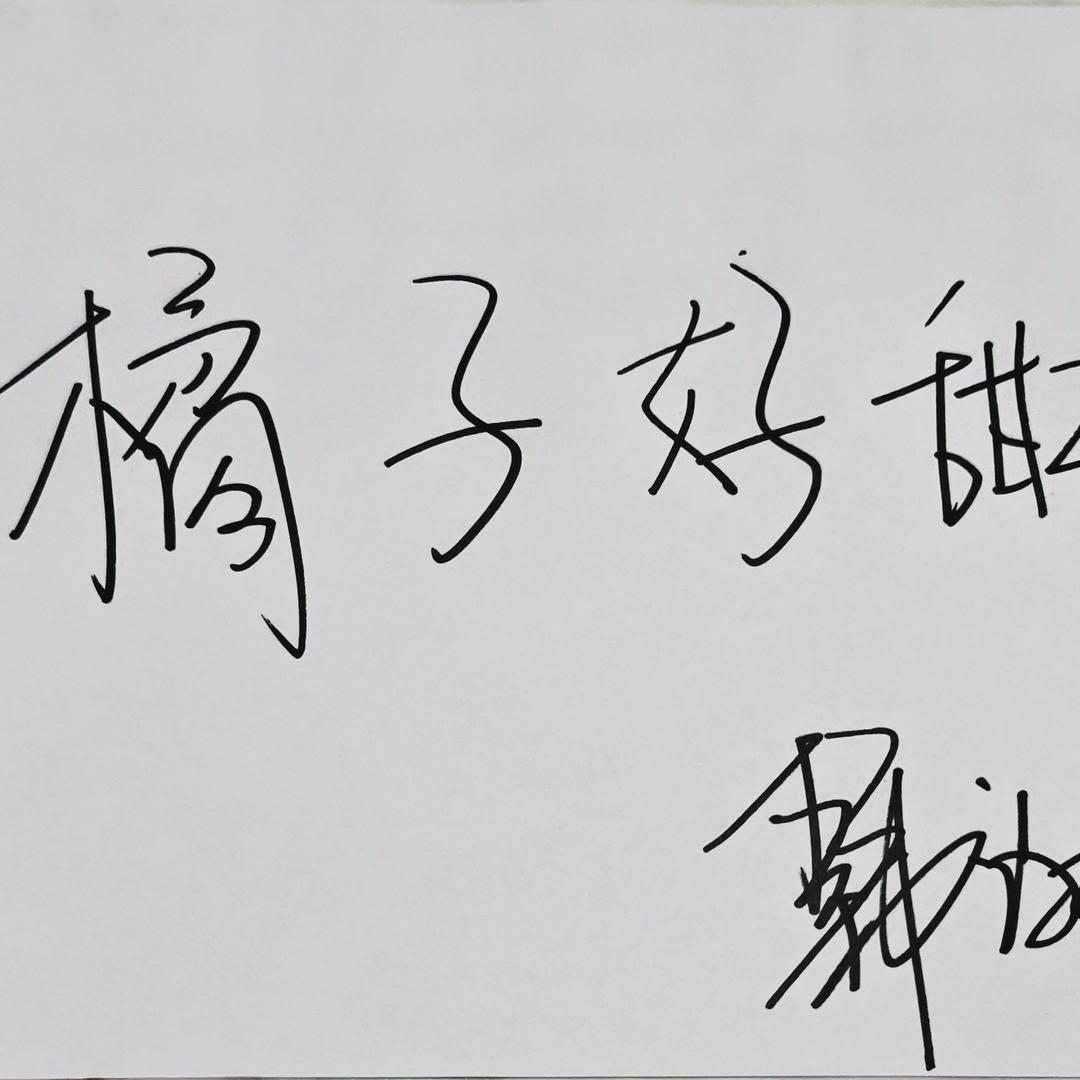 橘子好甜